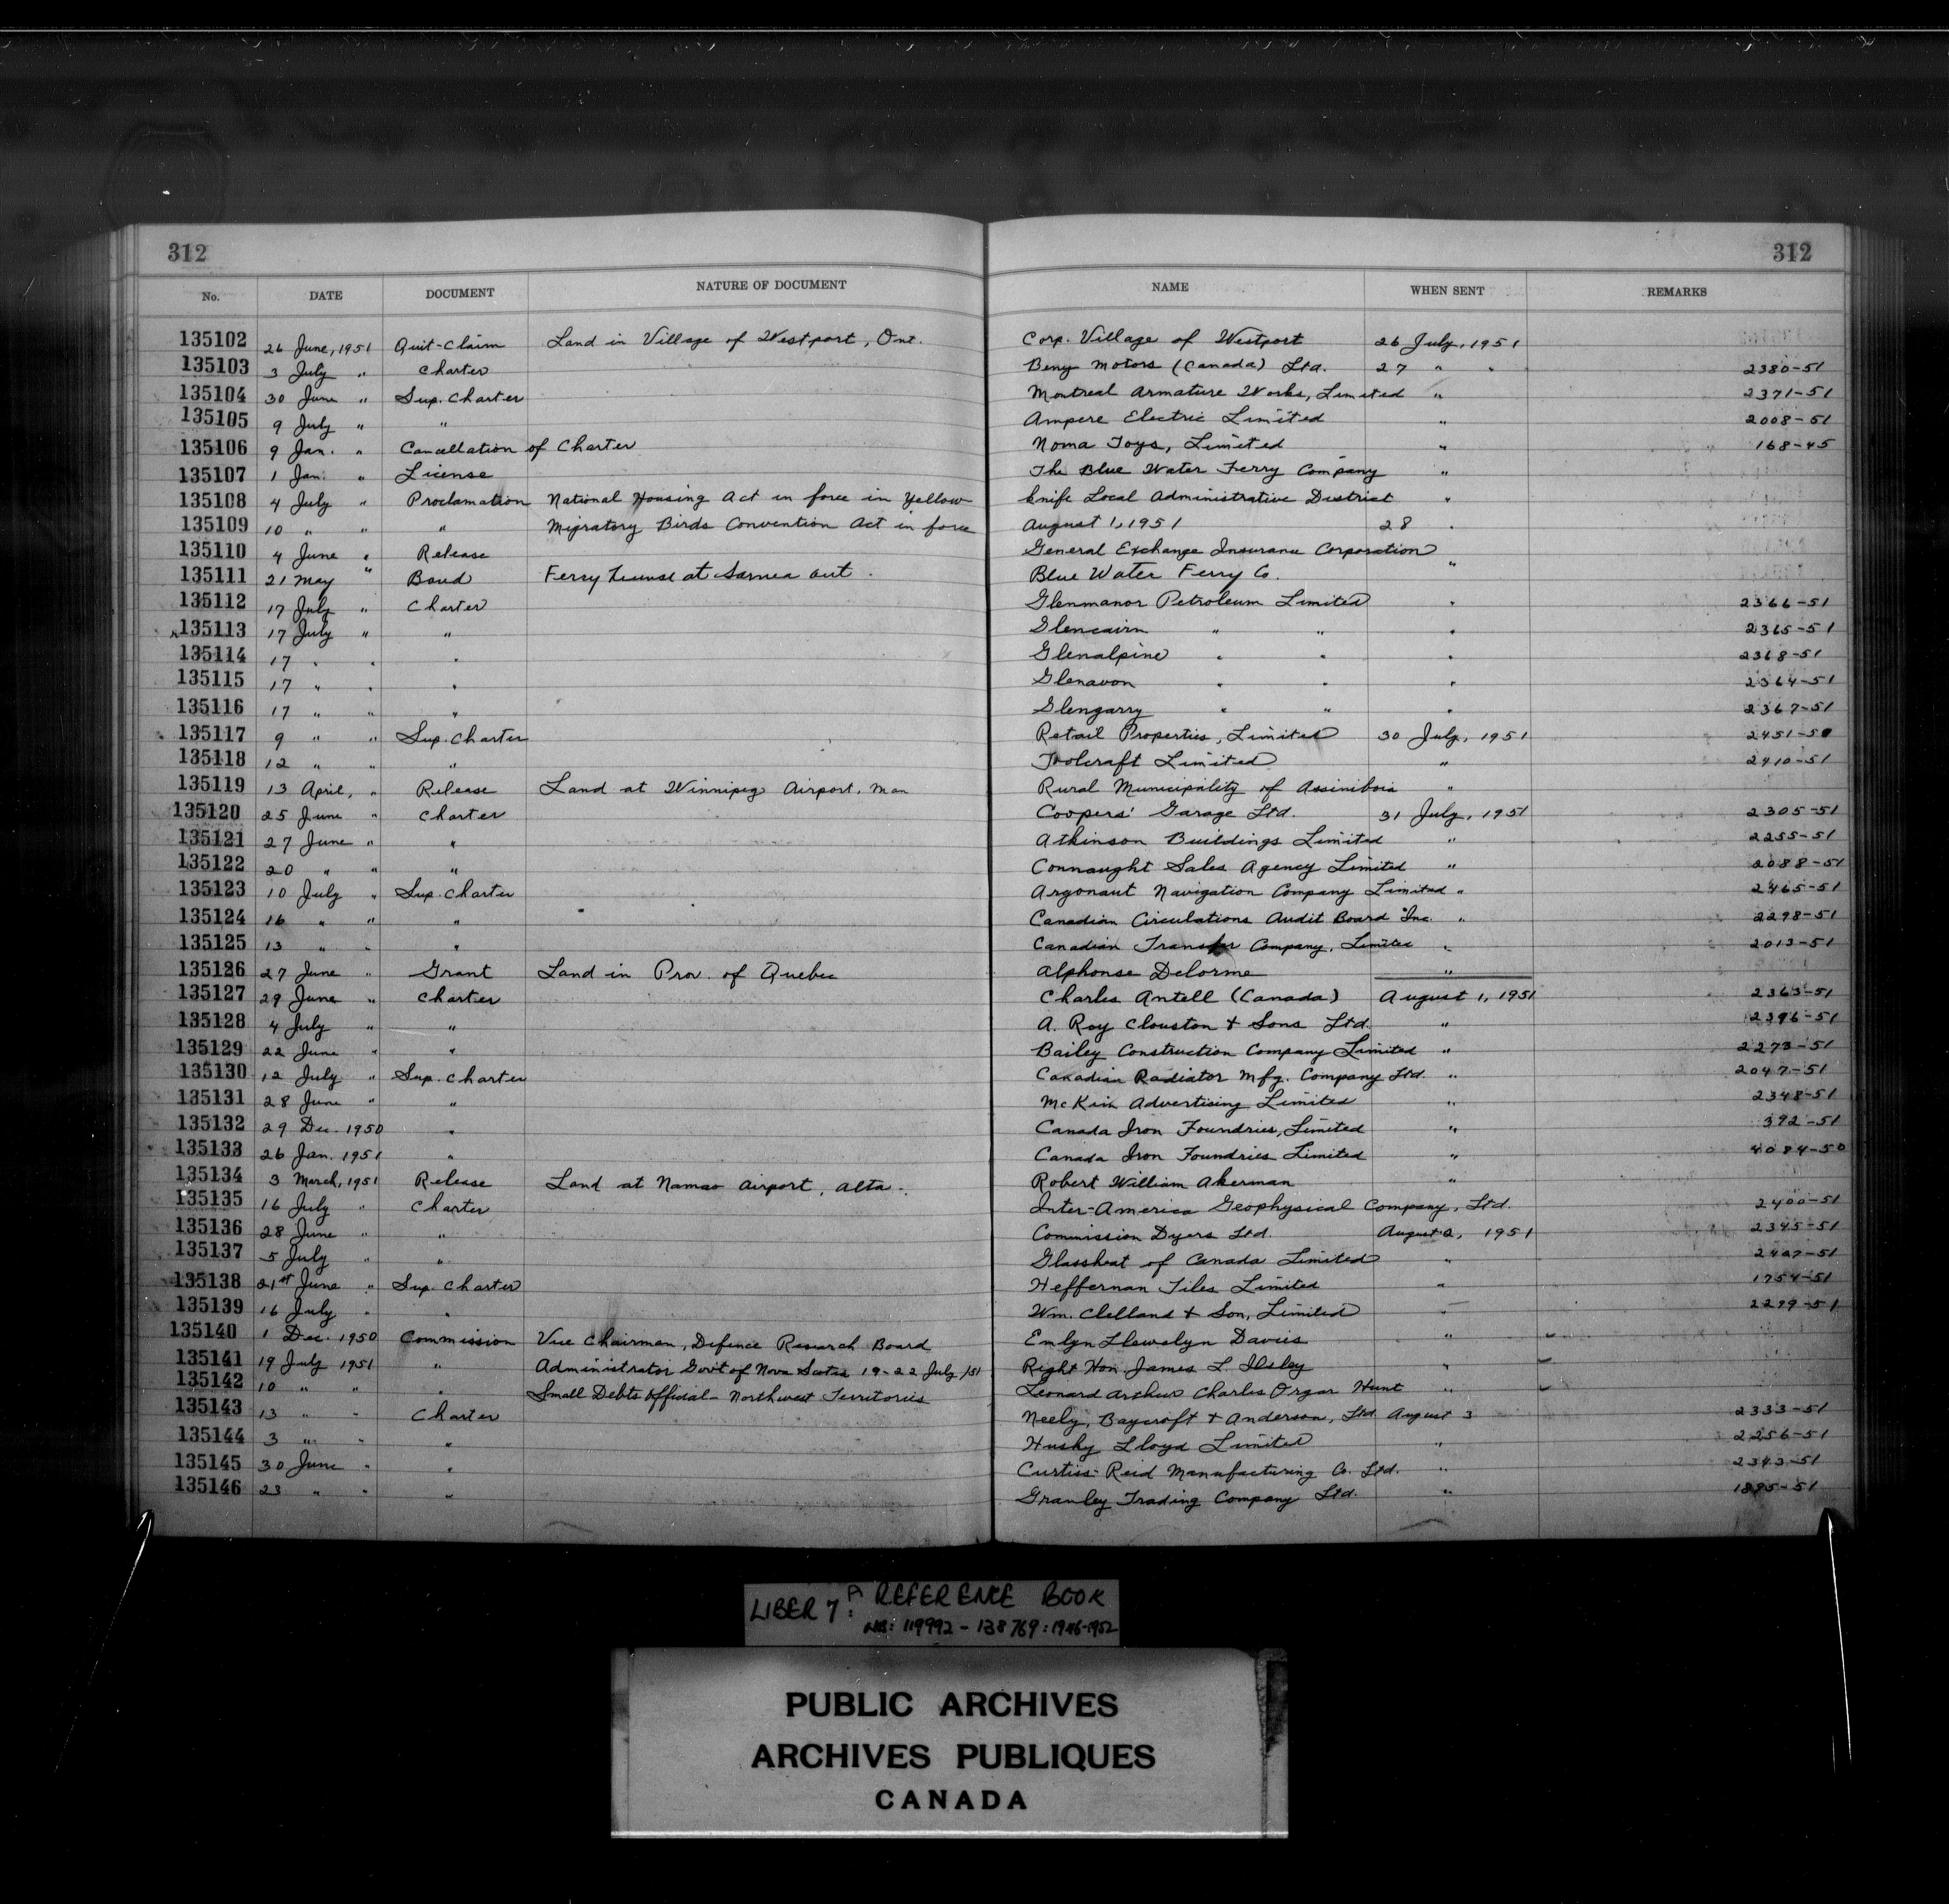 312 312
No. DATE DOCUMENT NATURE OF DOCUMENT NAME WHEN SENT REMARKS
135102 26 June, 1951 Quit-Claim Land in Village of Westport, Ont. Corp. Village of Westport 26 July, 1951
135103 3 July " Charter Beny Motors (Canada) Ltd. 27 " " 2380-51
135104 30 June " Sup. Charter Montreal Armature Works, Limited " 2371-51
135105 9 July " " Ampere Electric Limited " 2008-51
135106 9 Jan. " Cancellation of Charter Noma Toys, Limited " 168-45
135107 1 Jan. " License The Blue Water Ferry Company "
135108 4 July " Proclamation National Housing Act in force in Yellow knife Local Administrative District "
135109 10 " " " Migratory Birds Convention Act in force August 1, 1951 28 "
135110 4 June " Release General Exchange Insurance Corporation
135111 21 May " Bond Ferry License at Sarnia Ont. Blue Water Ferry Co. "
135112 17 July " Charter Glenmanor Petroleum Limited " 2366-51
135113 17 July " " Glencairn " " " 2365-51
135114 17 " " " Glenalpine " " " 2368-51
135115 17 " " " Glenavon " " " 2364-51
135116 17 " " " Glengarry " " " 2367-51
135117 9 " " Sup. Charter Retail Properties, Limited 30 July, 1951 2451-50
135118 12 " " " Toolcraft Limited " 2410-51
135119 13 April, " Release Land at Winnipeg Airport. Man Rural Municipality of Assiniboia "
135120 25 June " Charter Coopers' Garage Ltd. 31 July, 1951 2305-51
135121 27 June " " Atkinson Buildings Limited " 2255-51
135122 20 " " " Connaught Sales Agency Limited " 2088-51
135123 10 July " Sup. Charter Argonaut Navigation Company Limited " 2465-51
135124 16 " " " Canadian Circulations Audit Board Inc. " 2298-51
135125 13 " " " Canadian Transfer Company, Limited " 2013-51
135126 27 June " Grant Land in Prov. of Quebec Alphonse Delorme "
135127 29 June " Charter Charles Antell (Canada) August 1, 1951 2363-51
135128 4 July " " A. Roy Clouston & Sons Ltd. " 2396-51
135129 22 June " " Bailey Construction Company Limited " 2273-51
135130 12 July " Sup. Charter Canadian Radiator Mfg. Company Ltd. " 2047-51
135131 28 June " " McKim Advertising Limited " 2348-51
135132 29 Dec. 1950 " Canada Iron Foundries, Limited " 392-51
135133 26 Jan. 1951 " Canada Iron Foundries Limited " 4084-50
135134 3 March, 1951 Release Land at Namao Airport, Alta. Robert William Akerman "
135135 16 July " Charter Inter-America Geophysical Company, Ltd. 2400-51
135136 28 June " " Commission Dyers Ltd. August 2, 1951 2345-51
135137 5 July " " Glassheat of Canada Limited " 2407-51
135138 21st June " Sup. Charter Heffernan Tiles Limited " 1754-51
135139 16 July " " Wm. Clelland & Son, Limited " 2299-51
135140 1 Dec. 1950 Commission Vice Chairman, Defence Research Board Emlyn Llewelyn Davies "
135141 19 July 1951 " Administrator Gov't of Nova Scotia 19-22 July/51 Right Hon. James L. Ilsley "
135142 10 " " " Small Debts Official - Northwest Territories Leonard Arthur Charles Orgar Hunt "
135143 13 " " Charter Neely, Baycroft & Anderson, Ltd August 3 2333-51
135144 3 " " " Husky Lloyd Limited " 2256-51
135145 30 June " " Curtiss-Reid Manufacturing Co. Ltd. " 2343-51
135146 23 " " " Granley Trading Company Ltd. " 1895-51
LIBER 7A: REFERENCE BOOK
NOS: 119992 - 138769: 1946-1952
PUBLIC ARCHIVES
ARCHIVES PUBLIQUES
CANADA